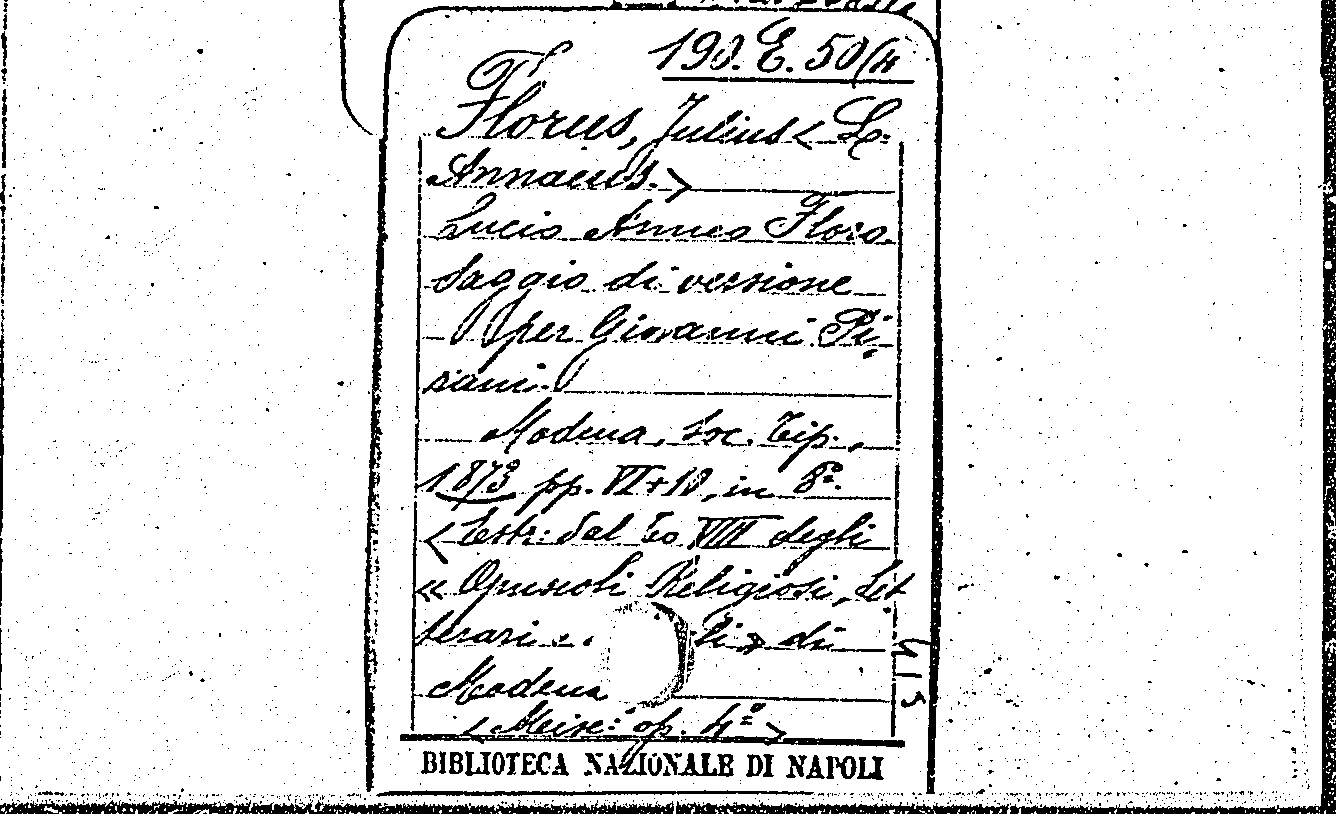 190. E. 50(4
Florus, Julius < L.
Annaeus. >
Lucio Anneo Floro.
Saggio di versione
per Giovanni Pi-
sani.
Modena, Soc. Tip.,
1873 pp. VI+10, in 8º.
< Estr: dal To VIII degli
« Opuscoli Religiosi, Let
terari e. li » di
Modena
< Misc: op. 4º >
415
BIBLIOTECA NAZIONALE DI NAPOLI